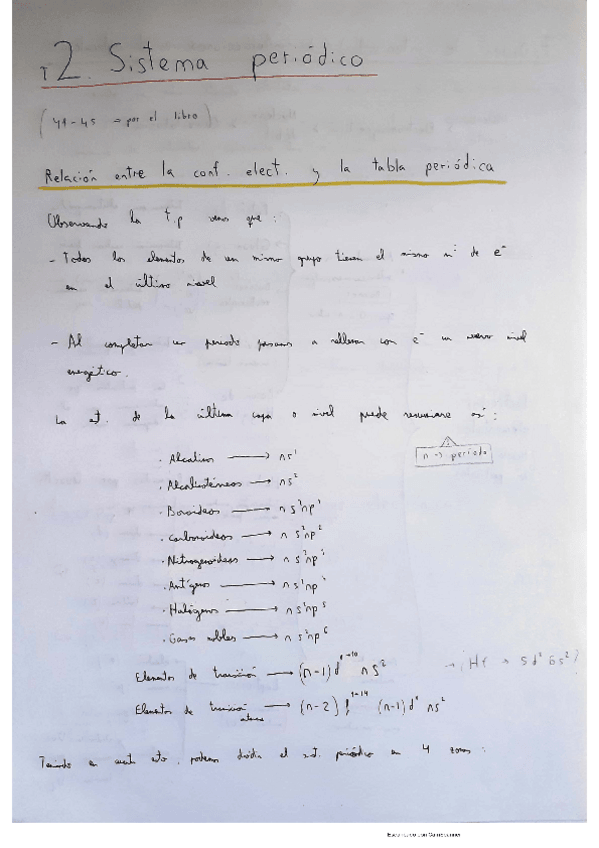 T2. Sistema periódico
(41-45 → por el libro)
Relación entre la conf. elect. y la tabla periódica
Observando la t.p vemos que:
- Todos los elementos de un mismo grupo tienen el mismo nº de e⁻
en el último nivel
- Al completar un periodo pasamos a rellenar con e⁻ un nuevo nivel
energético.
La st. de la última capa o nivel puede resumirse así:
n → periodo
· Alcalinos → ns¹
· Alcalinotérreos → ns²
· Boroideos → n s²np¹
· Carbonoideos → n s²np²
· Nitrogenoideos → n s²np³
· Anfígenos → n s²np⁴
· Halógenos → n s²np⁵
· Gases nobles → n s²np⁶
Elementos de transición → (n-1)d¹⁻¹⁰ ns²
→ ¡Hf → 5d² 6s²!
Elementos de transición → (n-2)f¹⁻¹⁴ (n-1)d ns²
Teniendo en cuenta esto, podemos dividir el sist. periódico en 4 zonas:
Escaneado con CamScanner